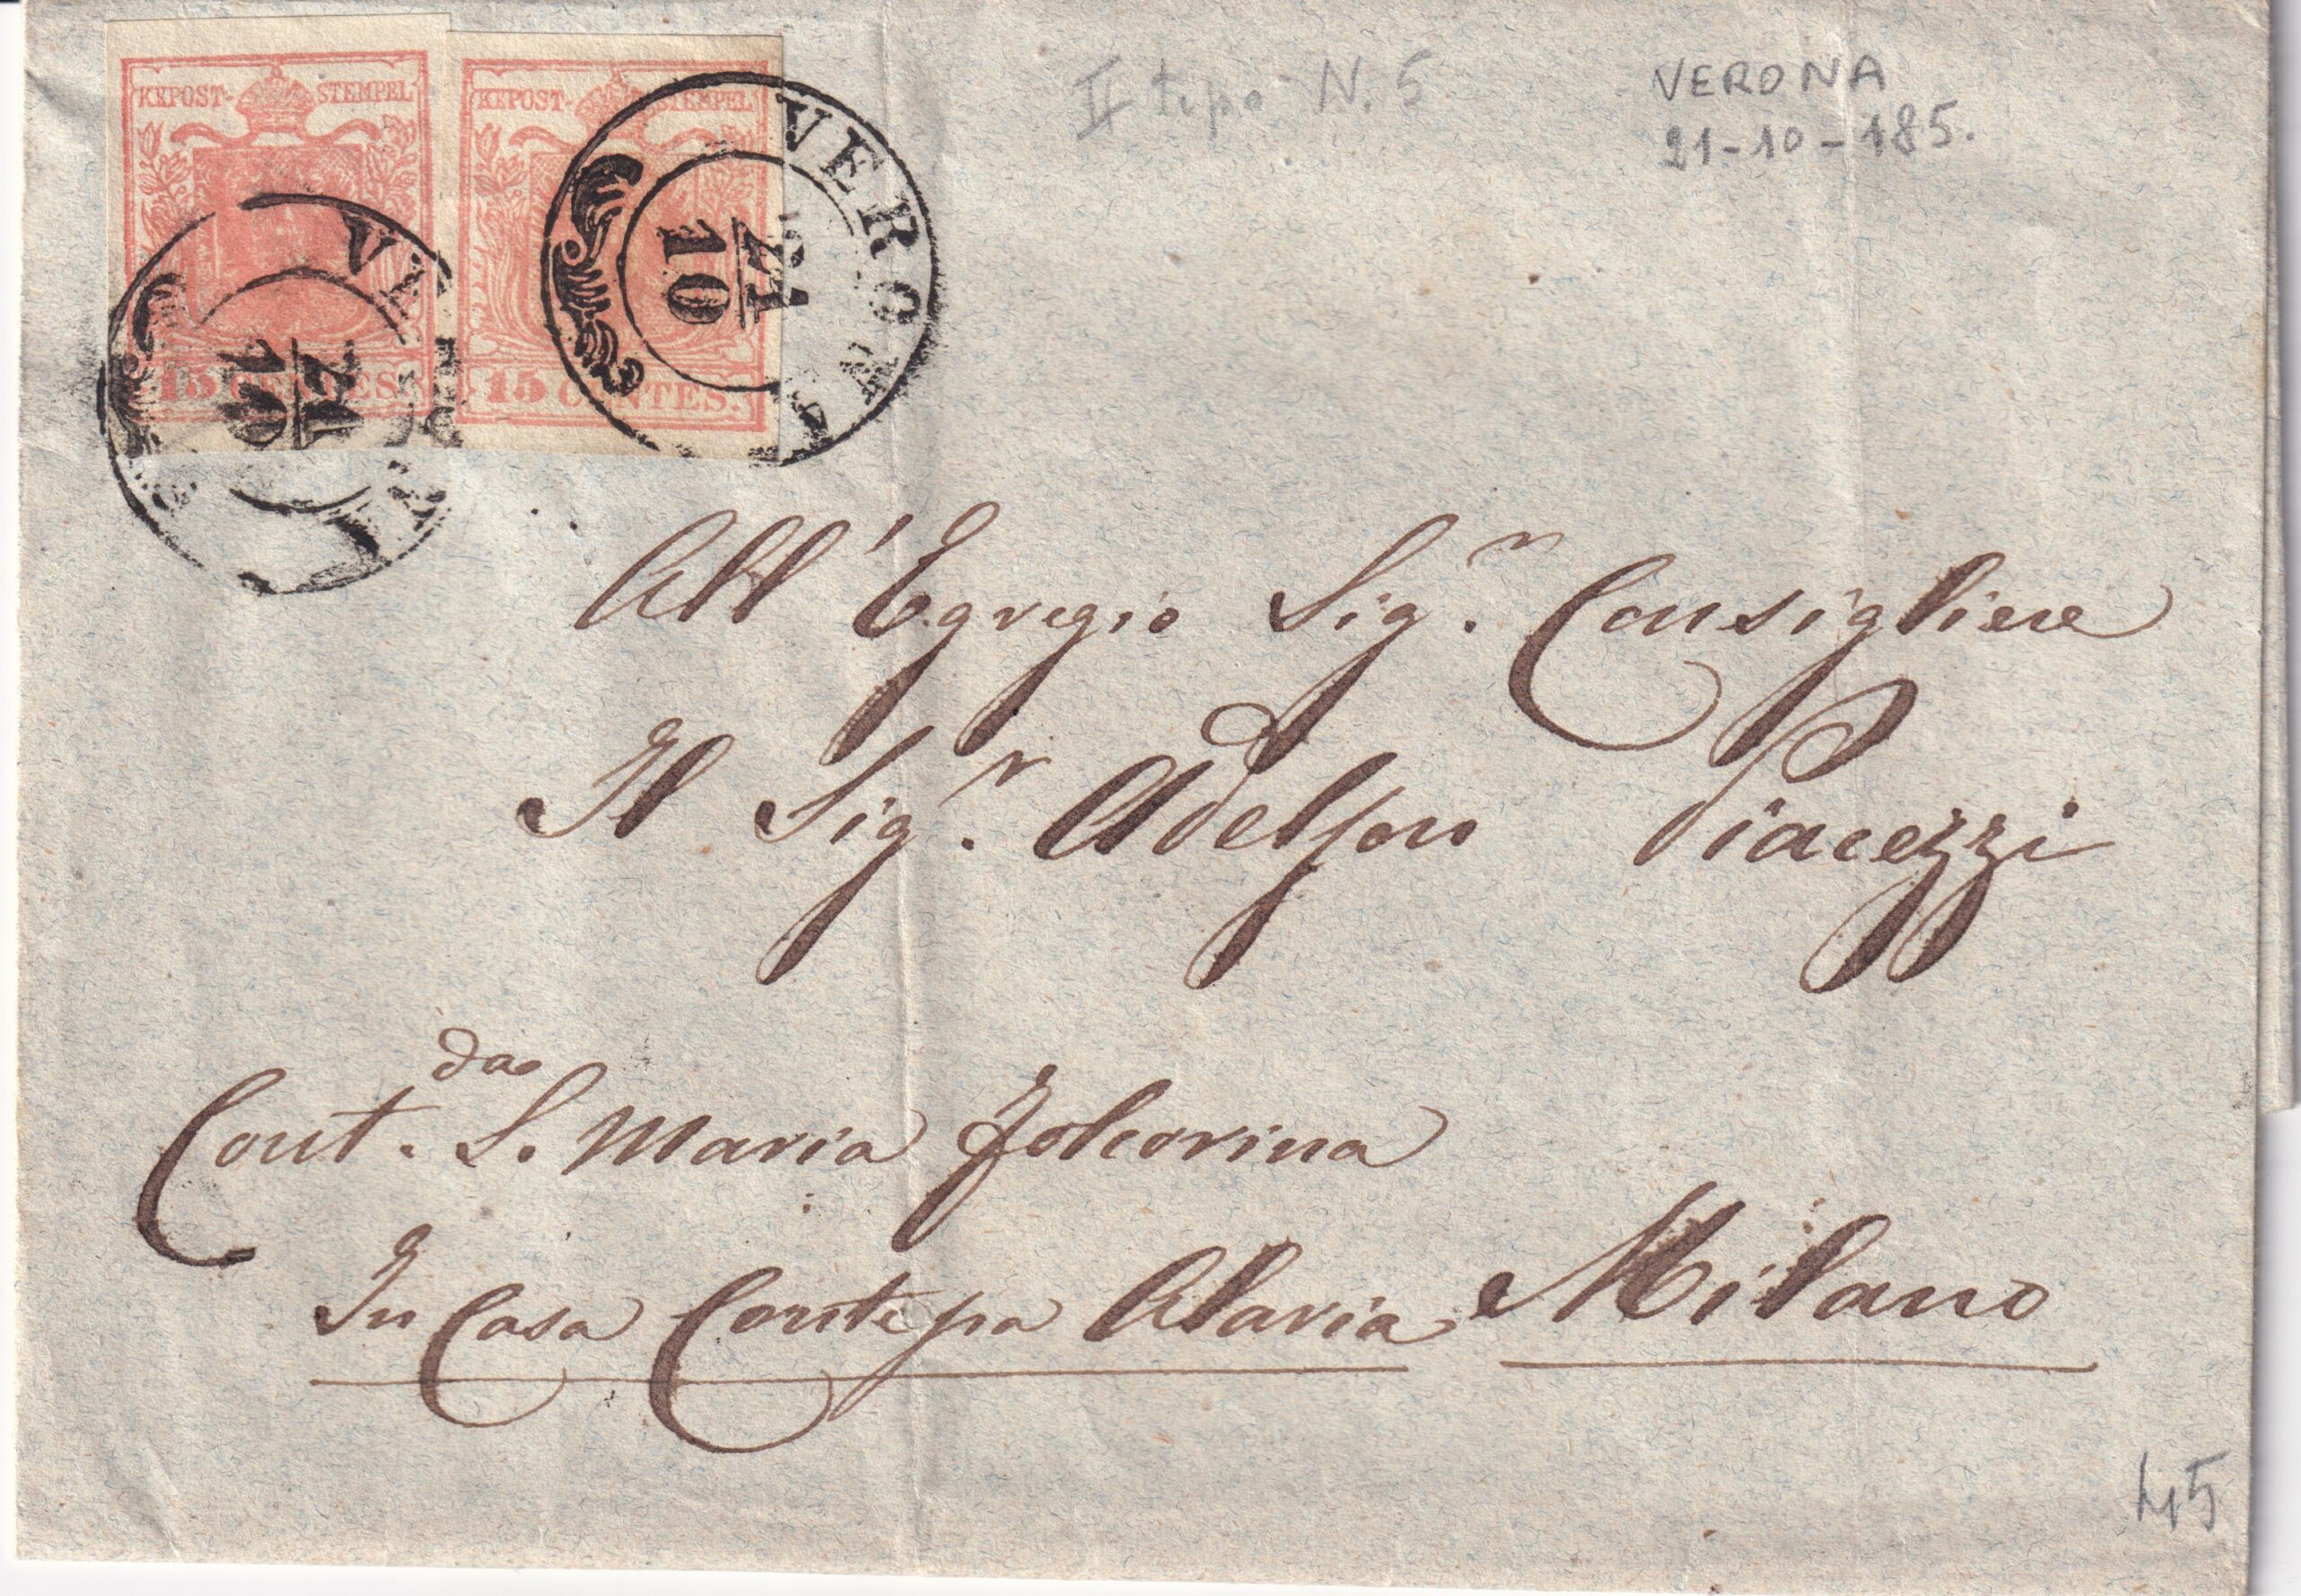 KKPOST- STEMPEL
15 CENTES.
KKPOST- STEMPEL
15 CENTES.
VERONA
21
10
VERONA
21
10
II tipo N. 5
VERONA
21-10-185.
All' Egregio Sig.r Consigliere
Il Sig.r Adelson Piacezzi
Cont.da S. Maria Folcorina
In Casa Contessa Alaria Milano
45